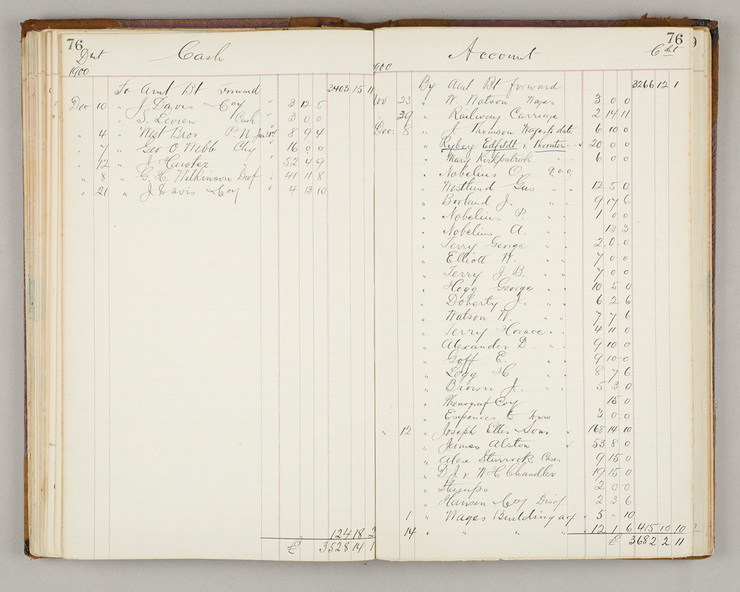 76
Cash
1900
To Amt Bt Forward 2403 15 11
Dec 10 " J. Davis Coy " 3 12 5
" S. Levien Cash " 3 0 0
" 4 " West Bros P.N. 8 9 4
" 7 " Geo O Webb Chq " 16 0 0
" 12 " J. 52 4 9
" 8 " G. H. Wilkinson Drof " 41 11 8
" 21 " J Davis Coy " 4 13 10
124 18 2
£ 3528 14 1
76
Account
1900
By Amt Bt forward 3266 12 1
Nov 23 " W. Watson Wages 3 0 0
" 29 " Railway Carriage 2 14 11
Dec 8 " J Thomson Wages to date 6 10 0
" 20 0 0
" Mary Kirkpatrick " " 6 0 0
" Nobelius C.
" Westlund Gus " " 12 5 0
" Borland J. " " 9 17 6
" Nobelius P. " 1 0 0
" Nobelius A. " " 13 3
" Terry George " " 2 0 0
" Elliott W. " " 7 0 0
" Terry J. B. " " 7 0 0
" Hogg George " " 10 5 0
" Doherty J. " " 6 2 6
" Watson W. " " 7 7 6
" Terry Horace " " 4 11 0
" Alexander D. " " 9 10 0
" Goff E. " " 9 10 0
" Legg H " " 8 7 6
" Brown J. " " 5 3 0
" Coy 15 0
" Expences to Town 3 0 0
" 12 " Joseph Etter Sons " 168 14 10
" James Alston " 53 8 0
" Alex Sturrock Cases 9 15 0
" D. J. & W H Chandler 19 15 0
" Stamps 2 0 0
" Hansen Coy 2 3 6
1 " Wages Building 5 - 10
14 " " " 12 1 6 415 10 10
£ 3682 2 11